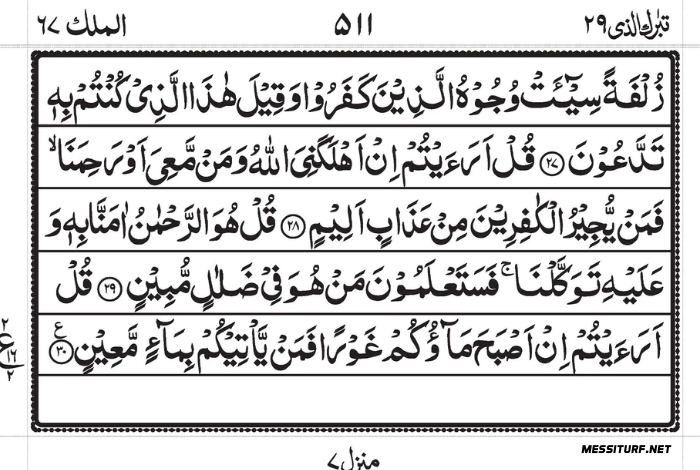 تبٰرك الذی ۲۹
۵۱۱
الملك ۶۷
زُلْفَةً سِيْٓئَتْ وُجُوْهُ الَّذِيْنَ كَفَرُوْا وَقِيْلَ هٰذَا الَّذِيْ كُنْتُمْ بِهٖ
تَدَّعُوْنَ ﴿۲۷﴾ قُلْ اَرَءَيْتُمْ اِنْ اَهْلَكَنِيَ اللّٰهُ وَمَنْ مَّعِيَ اَوْ رَحِمَنَا ۙ
فَمَنْ يُّجِيْرُ الْكٰفِرِيْنَ مِنْ عَذَابٍ اَلِيْمٍ ﴿۲۸﴾ قُلْ هُوَ الرَّحْمٰنُ اٰمَنَّا بِهٖ وَ
عَلَيْهِ تَوَكَّلْنَا ۚ فَسَتَعْلَمُوْنَ مَنْ هُوَ فِيْ ضَلٰلٍ مُّبِيْنٍ ﴿۲۹﴾ قُلْ
اَرَءَيْتُمْ اِنْ اَصْبَحَ مَآؤُكُمْ غَوْرًا فَمَنْ يَّاْتِيْكُمْ بِمَآءٍ مَّعِيْنٍ ﴿۳۰﴾ ع
۲
ع ۱۶
۲
منزل ۷
MESSITURF.NET